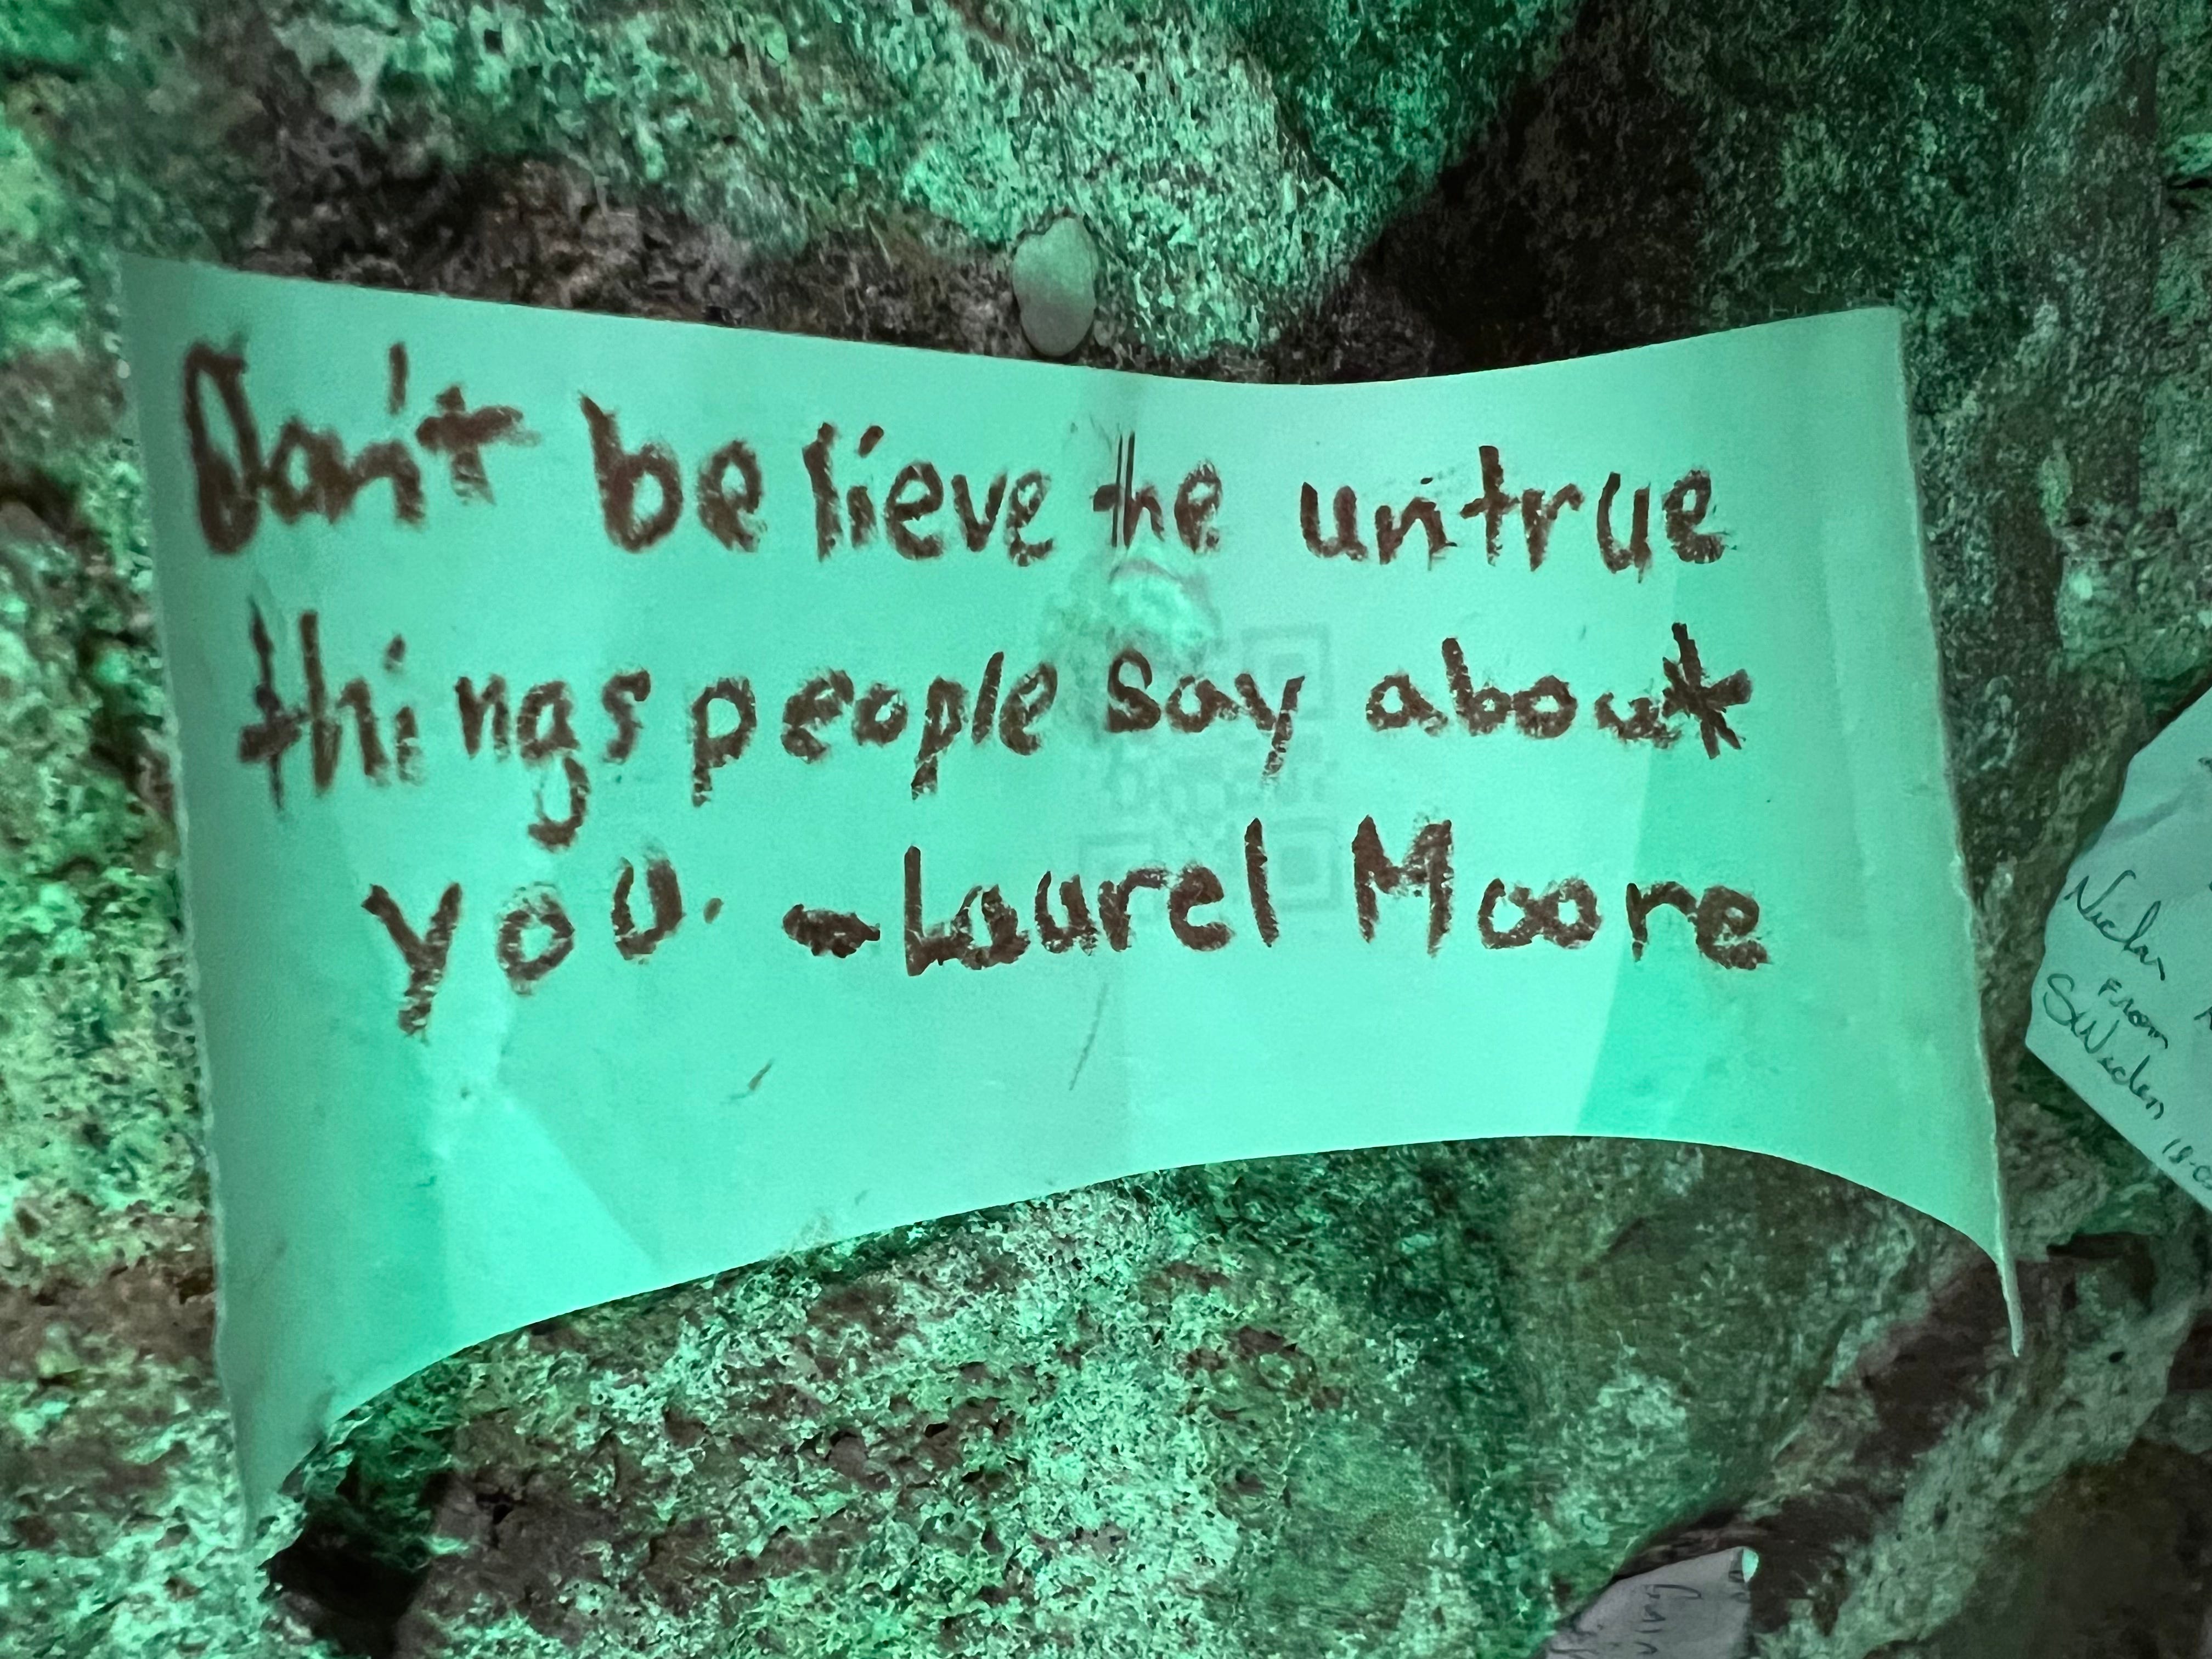 Don't believe the untrue
things people say about
you. - Laurel Moore
From
Sweden